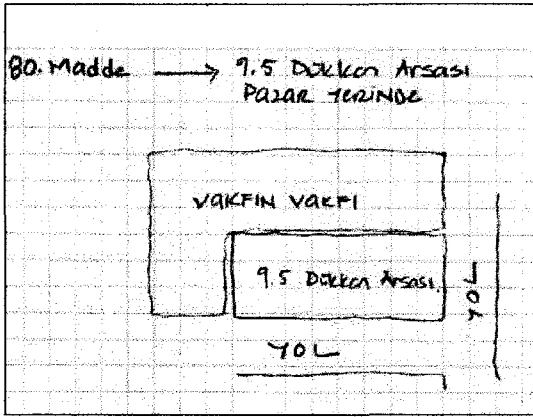 80. Madde → 9.5 Dükkan Arsası
PAZAR YERİNDE
VAKFIN VAKFI
9.5 Dükkan Arsası.
YOL
YOL